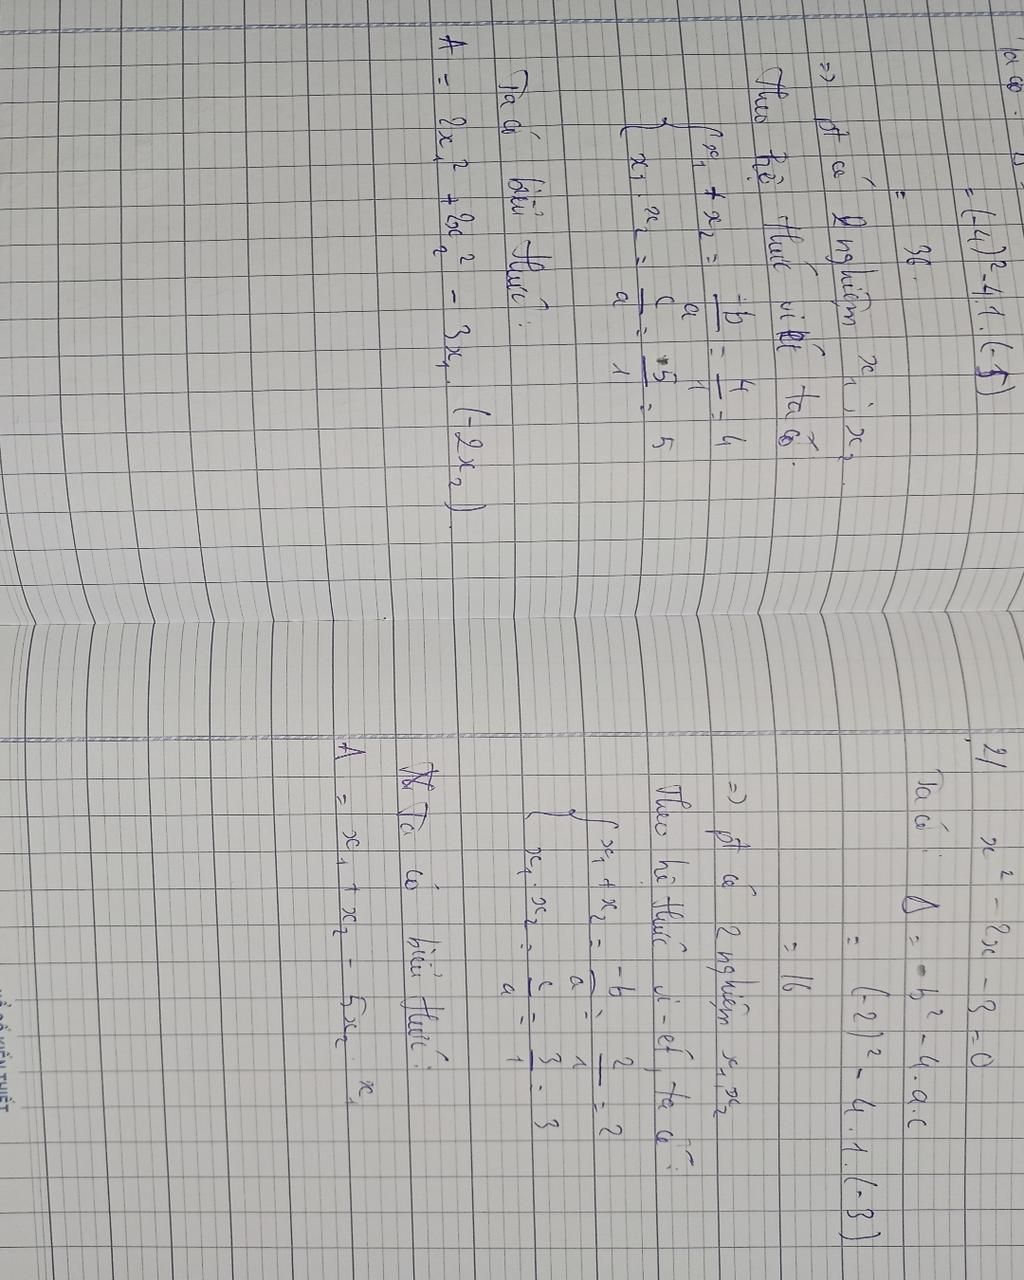 Ta có:
= (-4)² - 4.1.(-5)
= 36.
=) pt có 2 nghiệm x₁; x₂
Theo hệ thức viét ta có:
{ x₁ + x₂ = -b/a = 4/1 = 4
x₁ . x₂ = c/a = -5/1 = 5
Ta có biểu thức:
A = 2x₁² + 2x₂² - 3x₁ . (-2x₂)
2/ x² - 2x - 3 = 0
Ta có: Δ = b² - 4.a.c
= (-2)² - 4.1.(-3)
= 16
=) pt có 2 nghiệm x₁, x₂
Theo hệ thức vi-ét, ta có:
{ x₁ + x₂ = -b/a = 2/1 = 2
x₁ . x₂ = c/a = 3/1 = 3
Ta có biểu thức:
A = x₁ + x₂ - 5x₂ . x₁